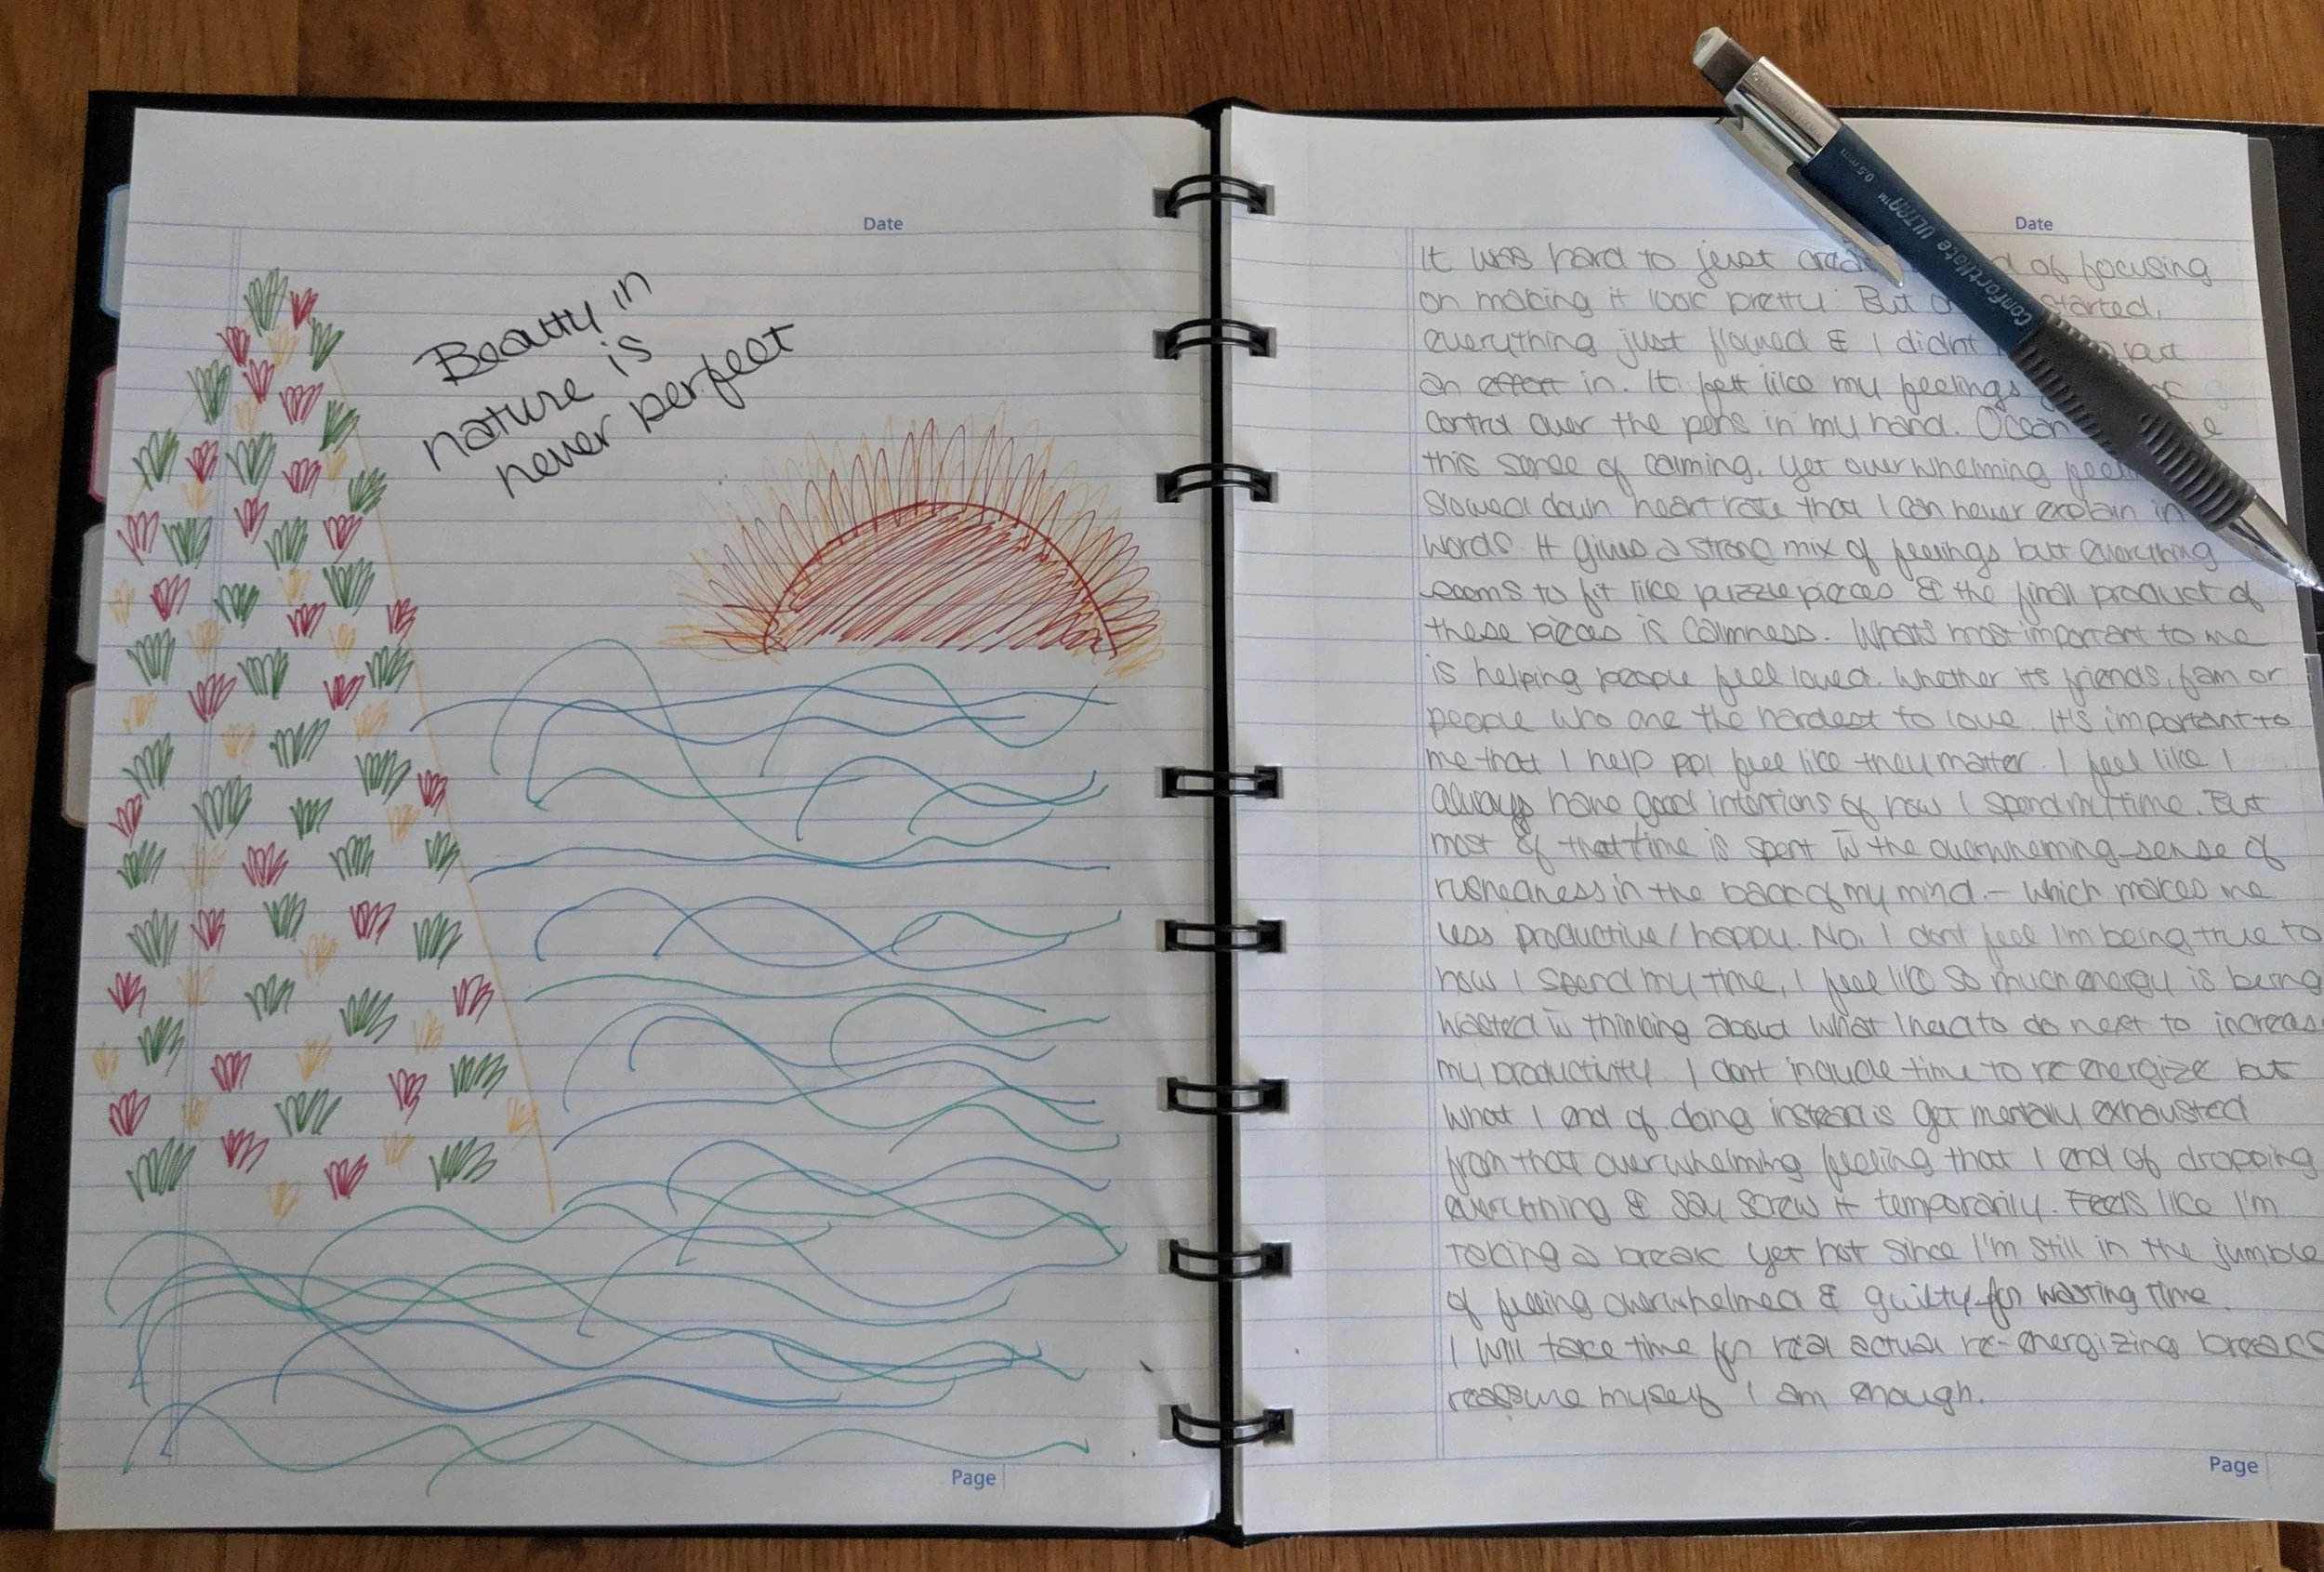 Date
Beauty in
nature is
never perfect
Page
Date
It was hard to just of focusing
on making it look pretty. But started,
everything just flowed & I didn't put
an effort in. It felt like my feelings
control over the pens in my hand. Ocean
this sense of calming, yet overwhelming
slowed down heart rate that I can never explain in
words. It gives a strong mix of feelings but everything
seems to fit like puzzle pieces & the final product of
these pieces is calmness. Whats most important to me
is helping people feel loved. Whether its friends, fam or
people who are the hardest to love. It's important to
me that I help ppl feel like they matter. I feel like I
always have good intentions of how I spend my time. But
most of that time is spent w the overwhelming sense of
rushedness in the back of my mind. - which makes me
less productive/happy. No, I dont feel I'm being true to
how I spend my time, I feel like so much energy is being
wasted w thinking about what I need to do next to increas
my productivity. I dont include time to re energize but
what I end of doing instead is get mentally exhausted
from that overwhelming feeling that I end of dropping
everything & say screw it temporarily. Feels like I'm
taking a break yet not since I'm still in the jumble
of feeling overwhelmed & guilty for wasting time.
I will take time for real actual re-energizing breaks
reassure myself I am enough.
Page
ComfortMate ULTRA™ 0.5 mm